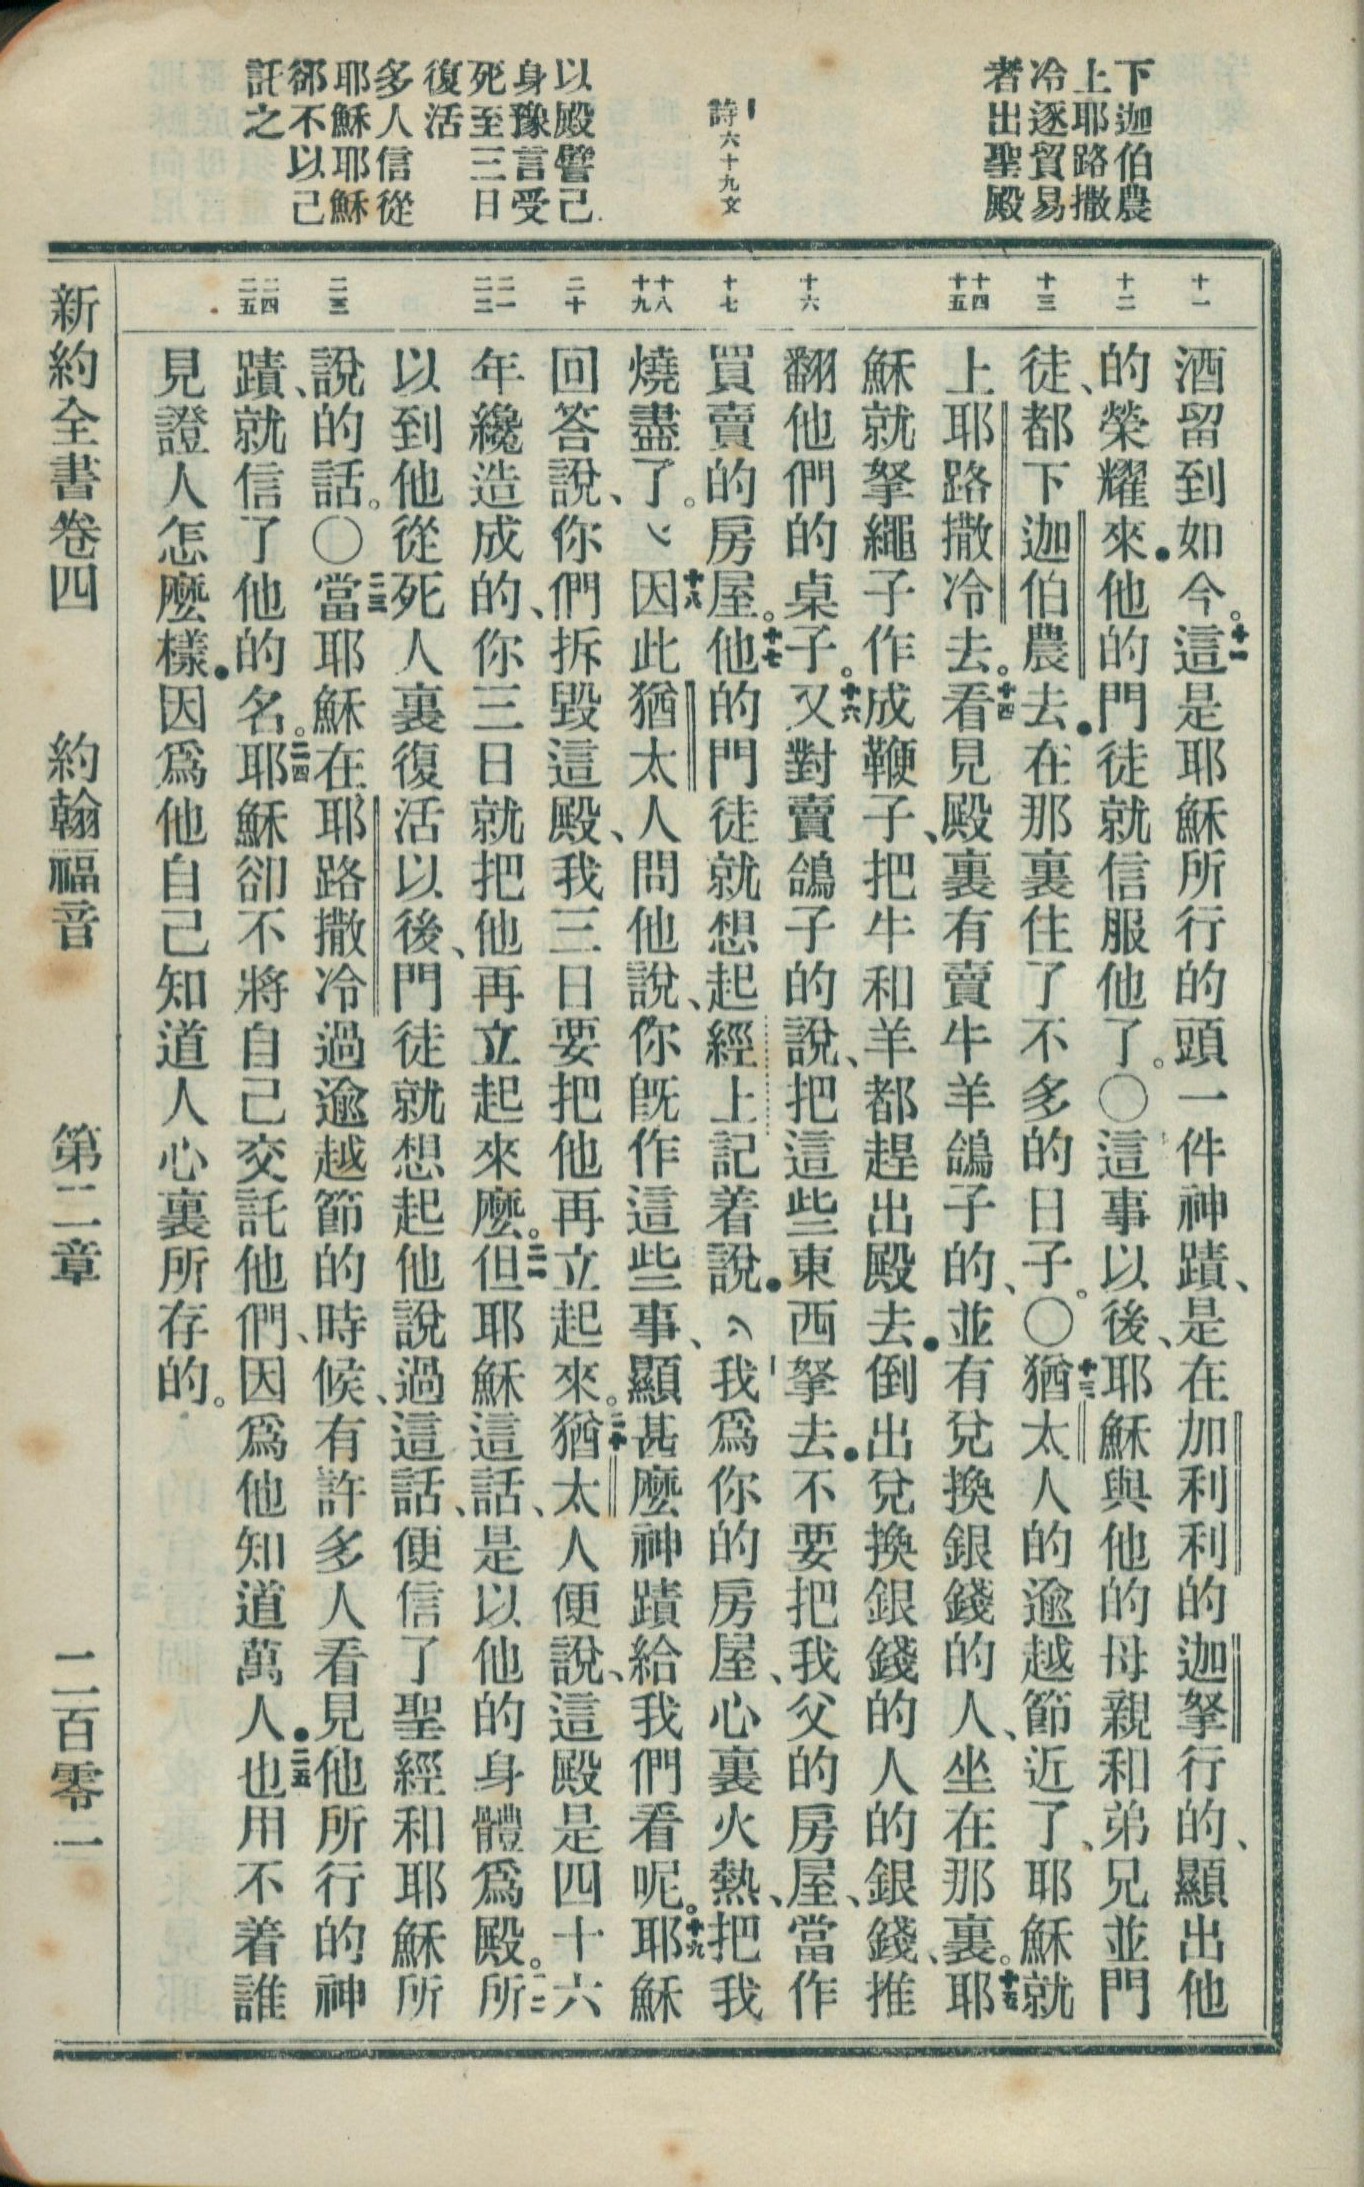 下迦伯農
上耶路撒
冷逐貿易
者出聖殿
詩六十九文
以殿譬己
身豫言受
死至三日
復活
多人信從
耶穌耶穌
郤不以己
託之
十一
十二
十三
十四
十五
十六
十七
十八
十九
二十
二一
二二
二三
二四
二五
酒留到如今。十一這是耶穌所行的頭一件神蹟、是在加利利的迦拏行的、顯出他
的榮耀來．他的門徒就信服他了。〇這事以後、耶穌與他的母親和弟兄並門
徒、都下迦伯農去．在那裏住了不多的日子。〇十三猶太人的逾越節近了、耶穌就
上耶路撒冷去。十四看見殿裏有賣牛羊鴿子的、並有兌換銀錢的人、坐在那裏。十五耶
穌就拏繩子作成鞭子、把牛和羊都趕出殿去．倒出兌換銀錢的人的銀錢、推
翻他們的桌子。十六又對賣鴿子的說、把這些東西拏去．不要把我父的房屋、當作
買賣的房屋。十七他的門徒就想起經上記着說．我爲你的房屋、心裏火熱、把我
燒盡了。十八因此猶太人問他說、你旣作這些事、顯甚麼神蹟給我們看呢。十九耶穌
回答說、你們拆毀這殿、我三日要把他再立起來。二十猶太人便說、這殿是四十六
年纔造成的、你三日就把他再立起來麼。二一但耶穌這話、是以他的身體爲殿。二二所
以到他從死人裏復活以後、門徒就想起他說過這話、便信了聖經和耶穌所
說的話。〇二三當耶穌在耶路撒冷過逾越節的時候、有許多人看見他所行的神
蹟、就信了他的名。二四耶穌卻不將自己交託他們、因爲他知道萬人．二五也用不着誰
見證人怎麼樣．因爲他自己知道人心裏所存的。
新約全書卷四 約翰福音 第二章 二百零二